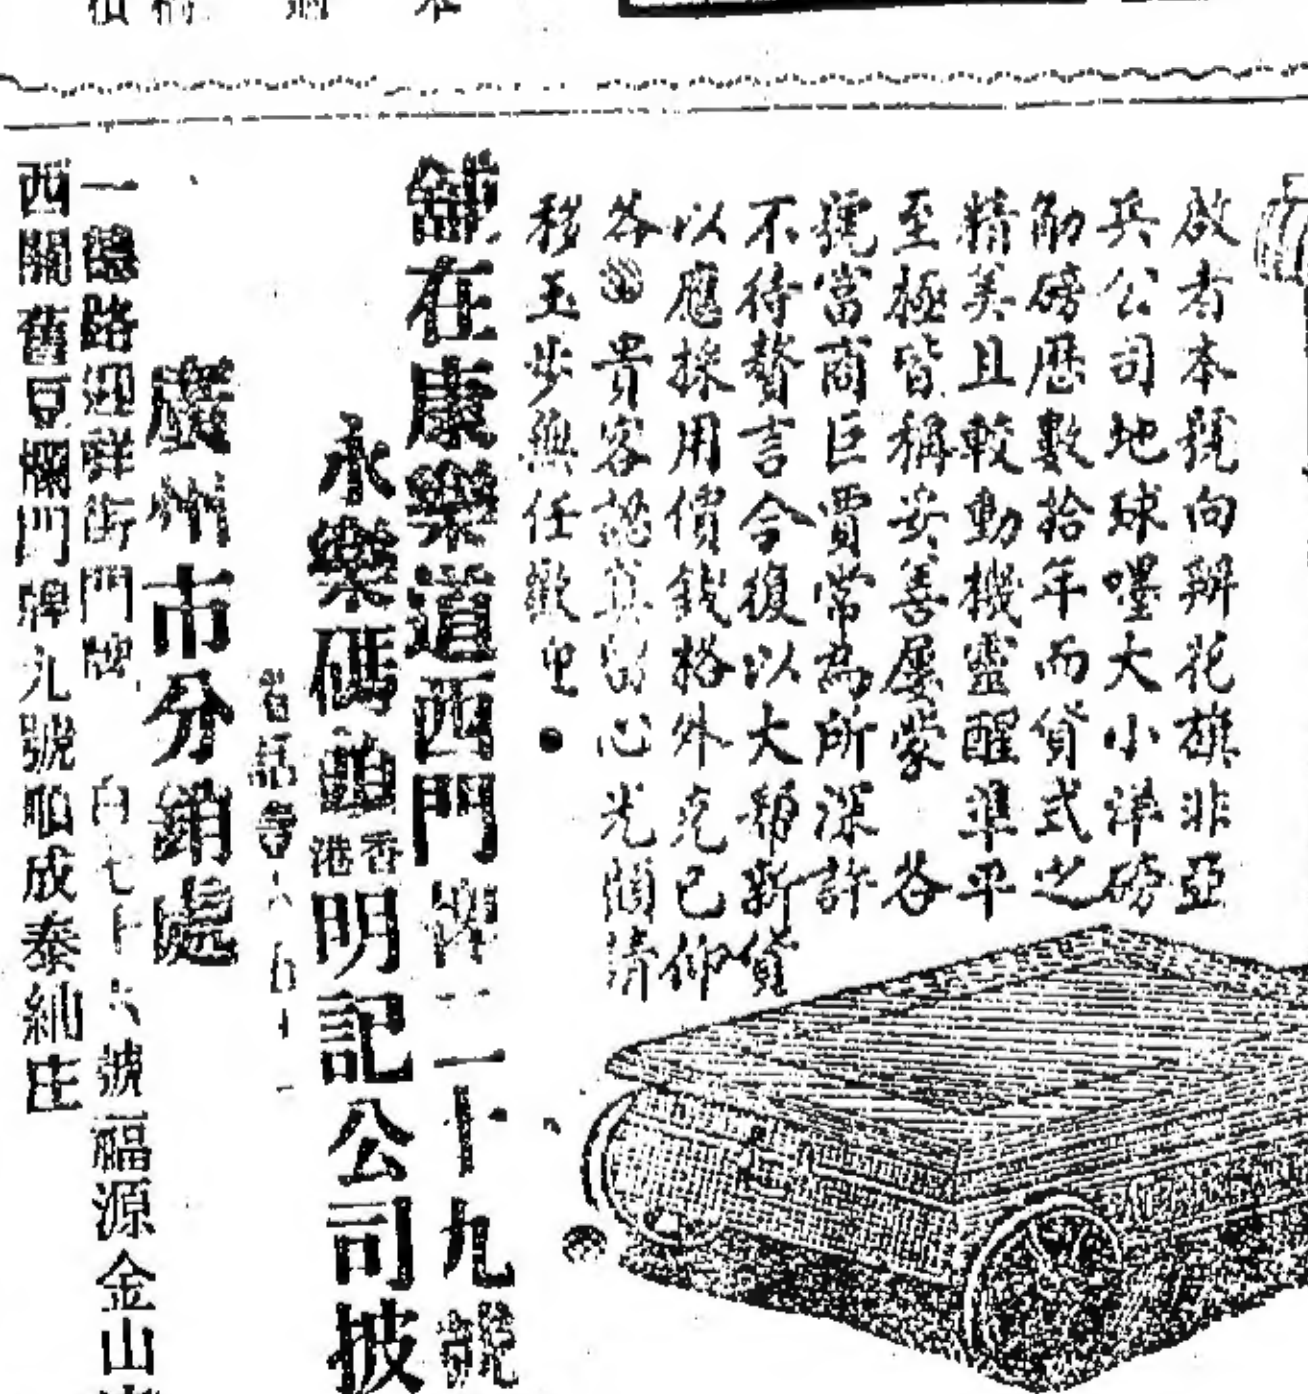 啟者本號向辦花旗非亞
兵公司地球嘜大小洋磅
觔磅歷數拾年而貨式之
精美且較動機靈醒準平
至極皆稱妥善屢蒙 各
號當商巨賈常為所深許
不待贅言今復以大幫新貨
以應採用價錢格外克己仰
各 貴客認真留心光顧請
移玉步無任歡迎
舖在康樂道西門牌二十九號
永樂碼頭香港明記公司披
廣州市分銷處
一德路迎祥街門牌 百七十六號福源金山
西關舊豆欄門牌九號順成泰綢庄